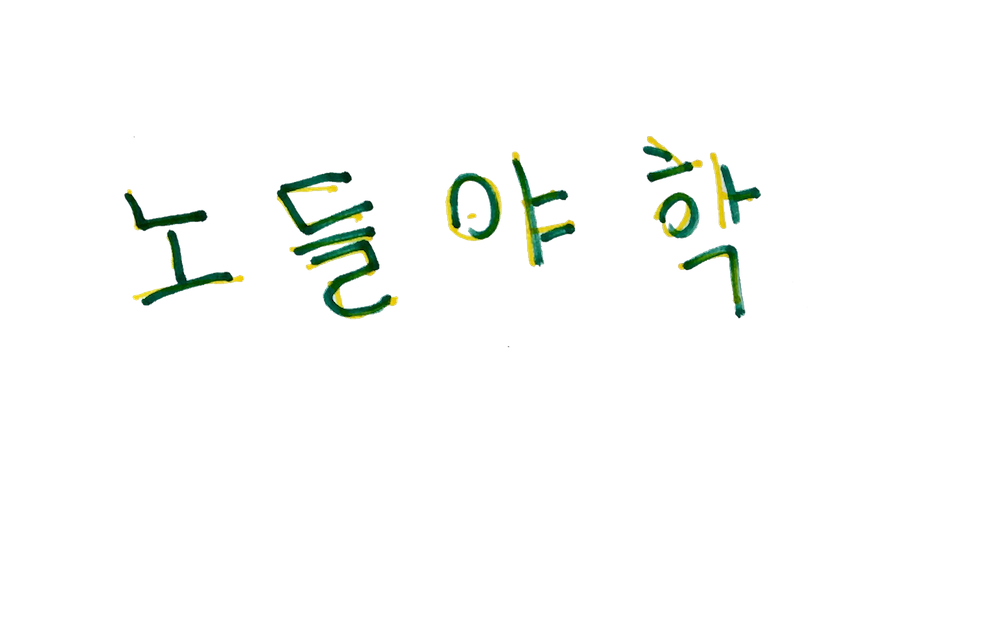 노들야학